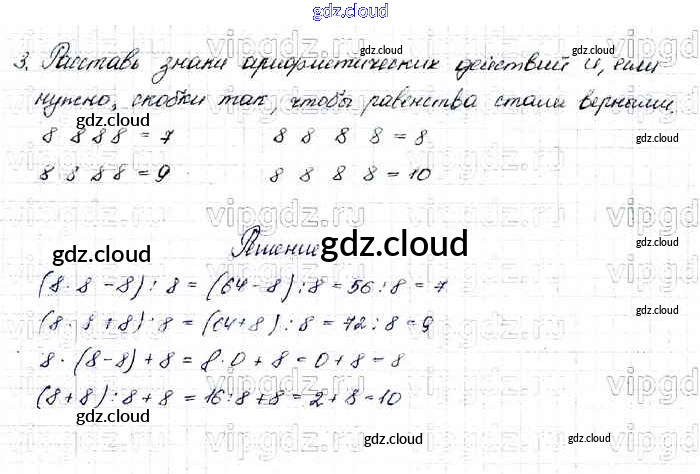 gdz.cloud
gdz.cloud
gdz.cloud
3. Расставь знаки арифметических действий и, если
нужно, скобки так, чтобы равенства стали верными.
gdz.cloud
8 8 8 8 = 7 8 8 8 8 = 8
gdz.cloud
8 8 8 8 = 9 8 8 8 8 = 10
gdz.cloud
Решение
gdz.cloud gdz.cloud
gdz.cloud
(8 · 8 - 8) : 8 = (64 - 8) : 8 = 56 : 8 = 7
(8 · 8 + 8) : 8 = (64 + 8) : 8 = 72 : 8 = 9
gdz.cloud
8 · (8 - 8) + 8 = 8 · 0 + 8 = 0 + 8 = 8
(8 + 8) : 8 + 8 = 16 : 8 + 8 = 2 + 8 = 10
gdz.cloud
gdz.cloud
gdz.cloud
gdz.cloud